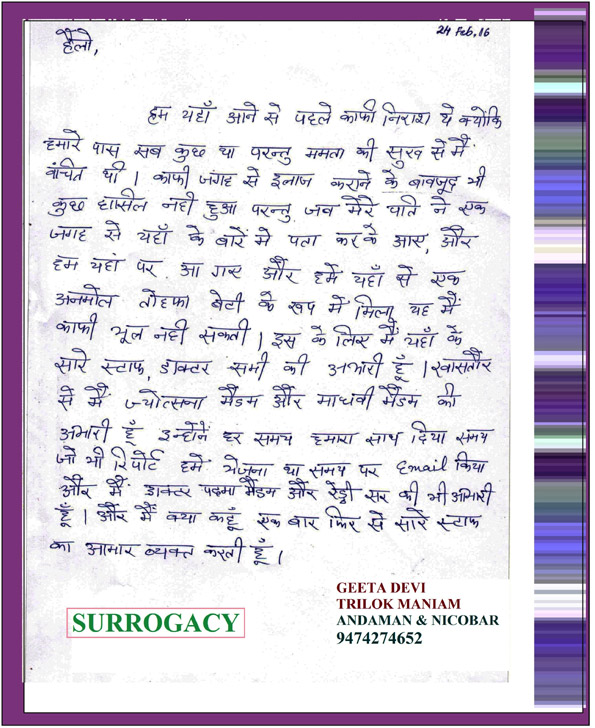 24 Feb, 16
हैलो,
हम यहाँ आने से पहले काफी निराश थे क्योंकि
हमारे पास सब कुछ था परन्तु ममता की सुख से मैं
वांचित थी । काफी जगह से इलाज कराने के बावजूद भी
कुछ हासील नही हुआ परन्तु जब मेरे पति ने एक
जगह से यहाँ के बारे मे पता करके आए, और
हम यहां पर आ गए और हमें यहाँ से एक
अनमोल तोहफा बेटी के रूप में मिला, यह मैं
काफी भूल नही सकती । इस के लिए मैं यहाँ के
सारे स्टाफ, डाक्टर सभी की आभारी हूँ । खासतौर
से मैं ज्योत्सना मैडम और माधवी मैडम की
आभारी हूँ इन्होंने हर समय हमारा साथ दिया समय
जो भी रिपोर्ट हमें भेजना था समय पर Email किया
और मैं डाक्टर पदमा मैडम और रेड्डी सर की भी आभारी
हूँ । और मैं क्या कहूँ एक बार फिर से सारे स्टाफ
का आभार व्यक्त करती हूँ ।
GEETA DEVI
TRILOK MANIAM
ANDAMAN & NICOBAR
9474274652
SURROGACY